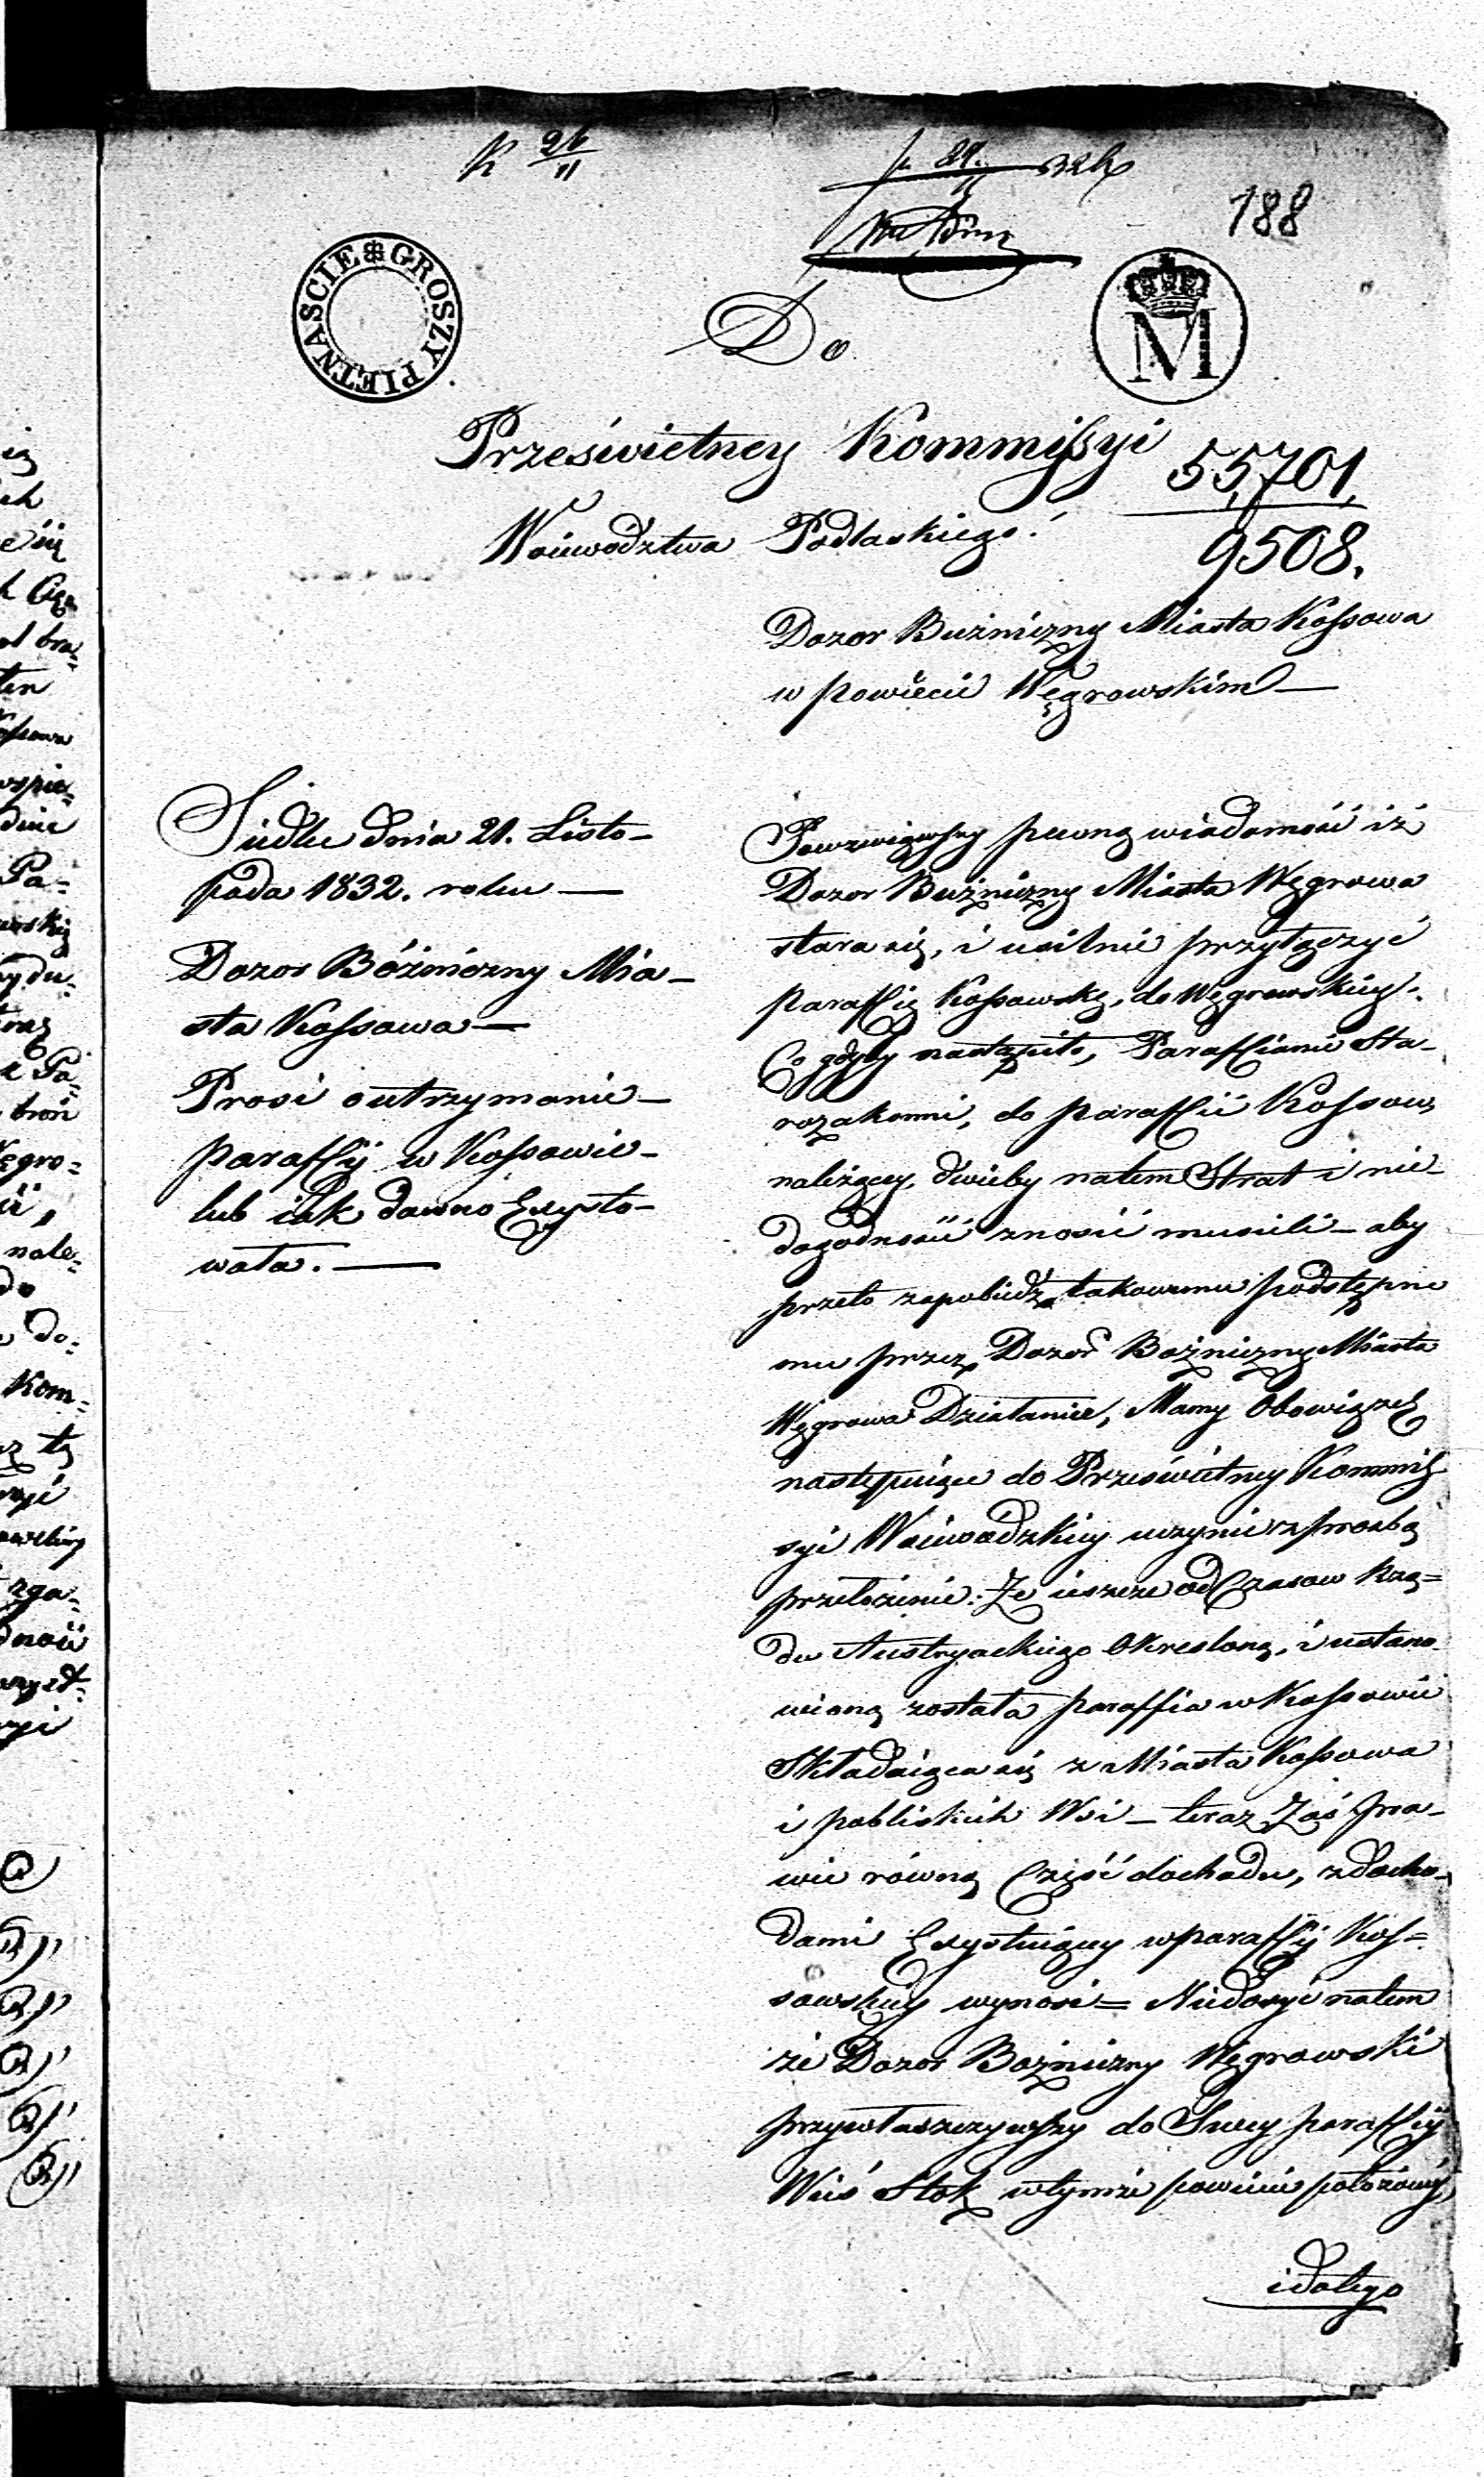 K 26/11
188
GROSZY PIETNASCIE
M
Do
Prześwietney Kommissyi
55,701,
Woiewodztwa Podlaskiego!
9508.
Dozor Buźniczny Miasta Kossowa
w powiecie Węgrowskim —
Siedlce dnia 21. Listo-
pada 1832. roku —
Dozor Bóźniczny Mia-
sta Kossowa —
Prosi o utrzymanie -
paraffij w Kossowie -
lub iak dawno Exysto-
wała. —
Powziąwszy pewną wiadomość iż
Dozor Buźniczny Miasta Węgrowa
stara się, i usilnie przyłączyć
paraffię Kossowską, do Węgrowskiey.
Co gdyby nastąpiło, Paraffianie Sta-
rozakonni, do paraffii Kossow
należący, natem Strat i nie-
dogodności znosić musieli - aby
przeto zapobiedz takowemu podstępne
mu przez Dozor Boźniczny Miasta
Węgrowa Działanie, Mamy Obowiązek
następuiące do Prześwietney Kommis
syi Woiewodzkiey uczynić z prośbą
przełożenie: Ze ieszcze od Czasow Rzą=
du Austryackiego Określoną, i ustano
wioną została paraffia w Kossowie
Składaiąca się z Miasta Kossowa
i pobliskich Wsi - teraz Zaś pra-
wie równą Część dochodu, z docho-
dami Exystuiący w paraffij Kos=
sowskiey wynosi = Niedosyć natem
że Dozor Boźniczny Węgrowski
przywłaszczywszy do Swey paraffij
Wieś Stok w tymże powiecie położony
i dotego